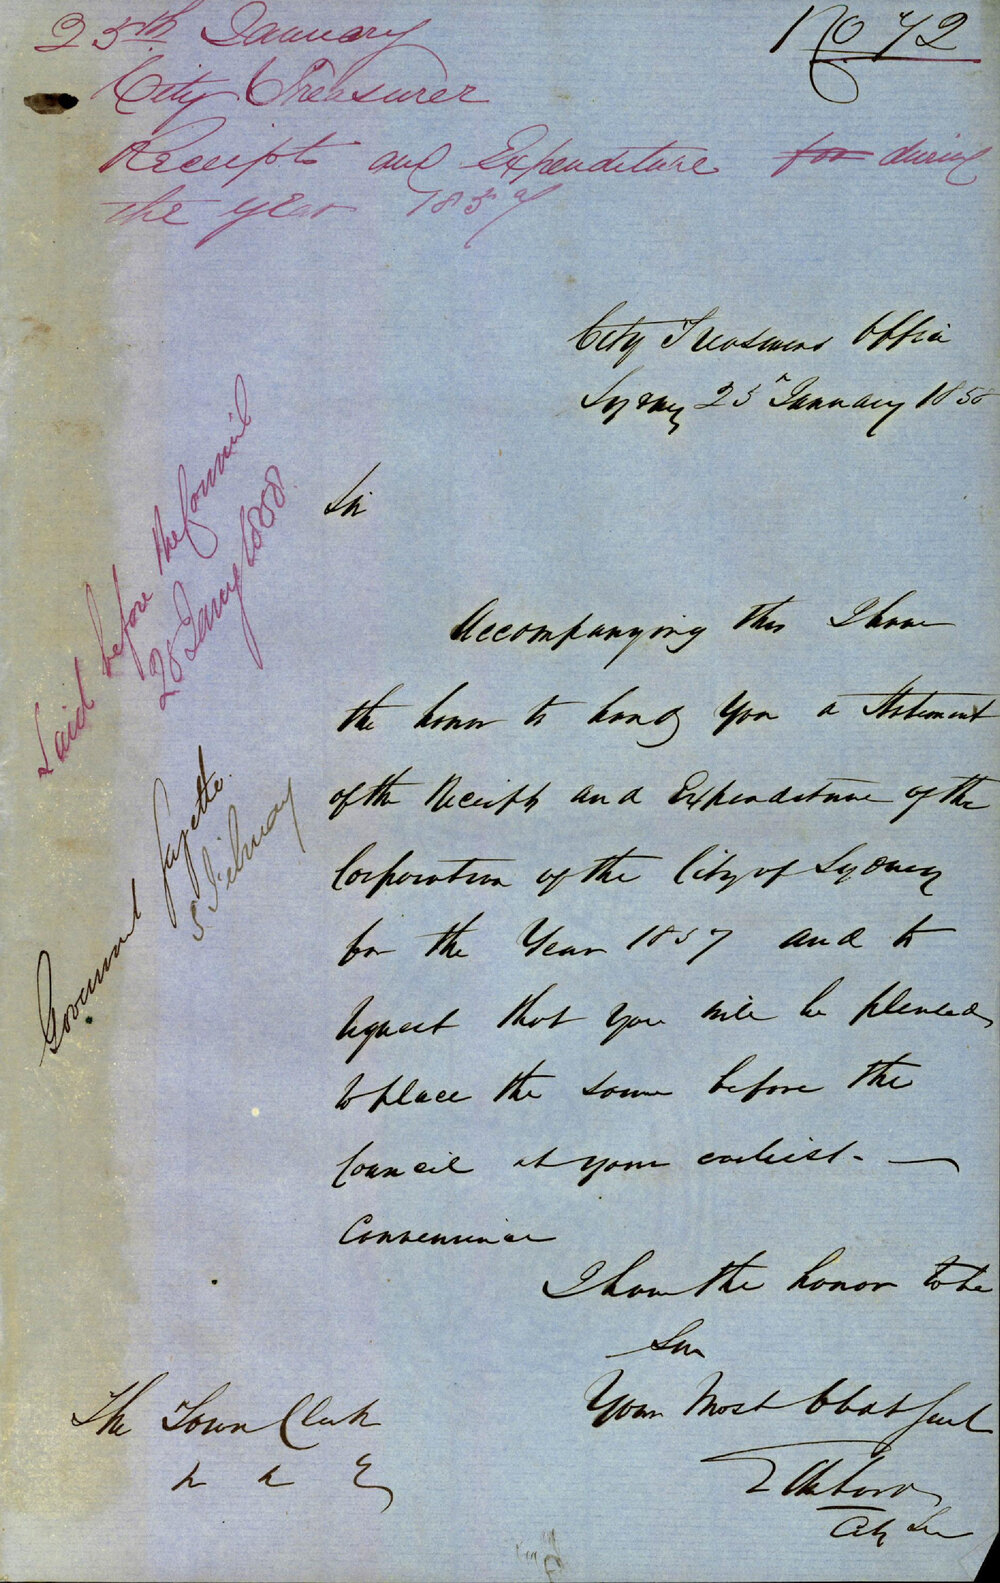 No 72
25th January
City Treasurer
Receipts and Expenditure for during
the year 1857
City Treasurers Office
Sydney 25th January 1858
Sir
Accompanying this I have
the honor to hand you a Statement
of the Receipts and Expenditure of the
Corporation of the City of Sydney
for the Year 1857 and to
request that you will be pleased
to place the same before the
Council at your earliest
Convenience
I have the honor to be
Sir
Your Most Obdt Servt
City Tr
The Town Clerk
Laid before the Council
28 Jany 1858
Government Gazette
5 February